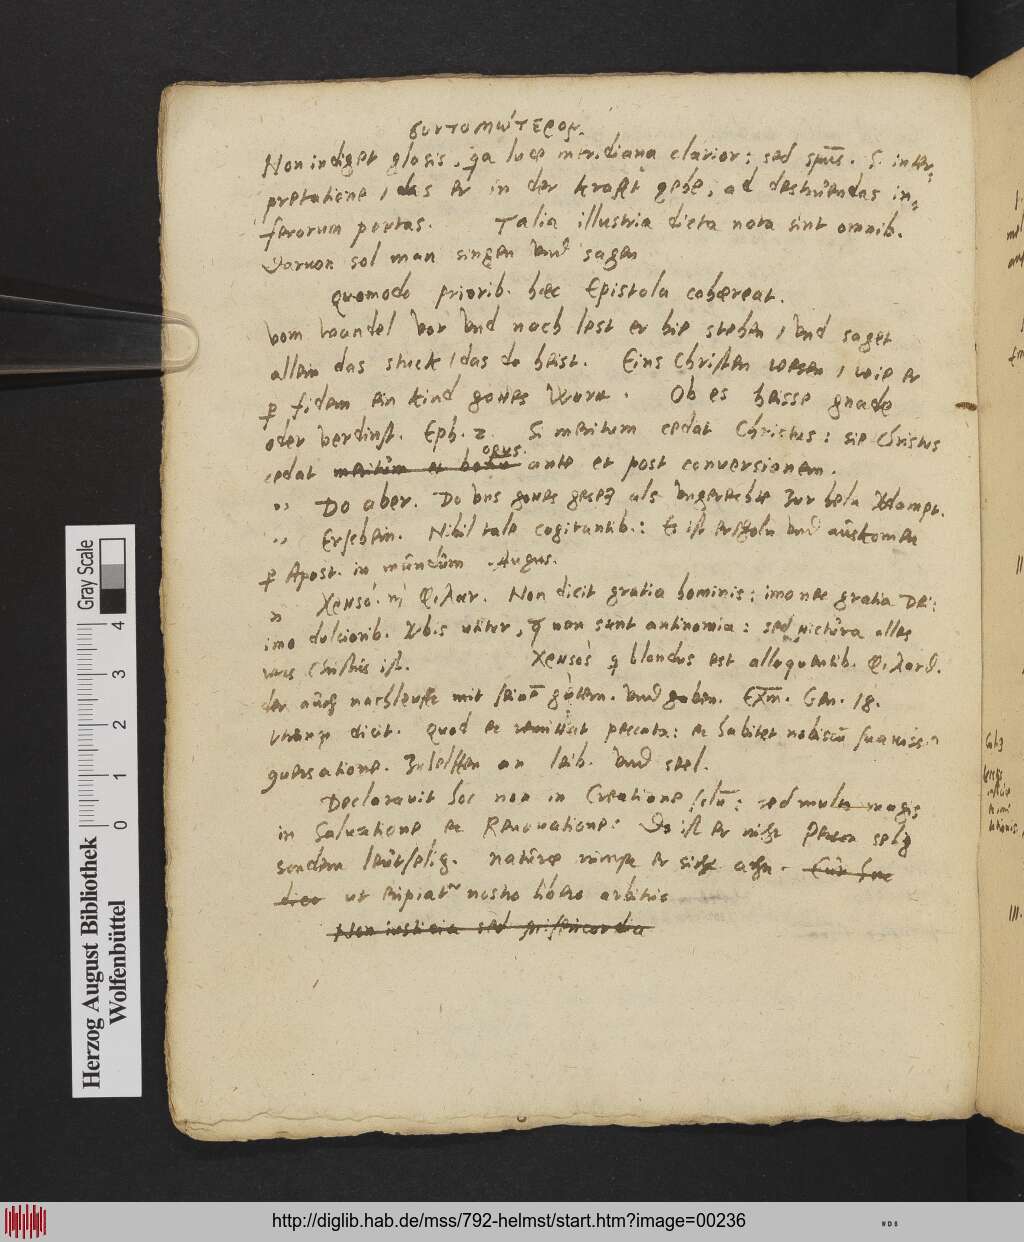 συντομώτερον.
Non indiget glosis, qa luce meridiana clarior: sed spūs. S. inter-
pretatione, das er in der krafft gebe, ad destruendas in-
ferorum portas. Talia illustria dicta nota sint omnib.
Daruon sol man singen vnd sagen
Quomodo priorib. hæc Epistola cohæreat.
Vom wandel vor vnd nach lest er hie stehen, vnd saget
allein das stuck, das do heist. Eins Christen wesen, wie er
p fidem ein kind gottes wurd. Ob es heisse gnade
oder verdinst. Eph. 2. Si meritum cedat Christus: sie Christus
cedat meritum et bona opus. ante et post conversionem.
" Do aber. Do vns gottes gesetz als vngerechte zur hell
" Erschein. Nihil tale cogitantib.: Es ist erscholn vnd auskomen
p Apost. in mundum. Augus.
" Non dicit gratia hominis: imo nec gratia Dei:
imo dulciorib. vbis utitur, non sunt antinomia: sed pictura alles
was Christus ist. blandus est alloquentib.
der auch nachleufft mit seinē gutern. vnd gaben. Exm. Gen. 18.
dicit. Quod et remittat peccata: et habitet nobiscū suauiss.
quersatione. Zuhelffen an leib. vnd seel.
Declarauit hoc non in Creatione sclū: sed multo magis
in Saluatione et Renouatione: Do ist er nicht Person selig
sondern leutselig. naturæ nimpt er sich an. Cur hoc
dico ut eripiatur nostro libero arbitrio
Non iusticia sed misericordia
Herzog August Bibliothek
Wolfenbüttel
Gray Scale
0 1 2 3 4
http://diglib.hab.de/mss/792-helmst/start.htm?image=00236